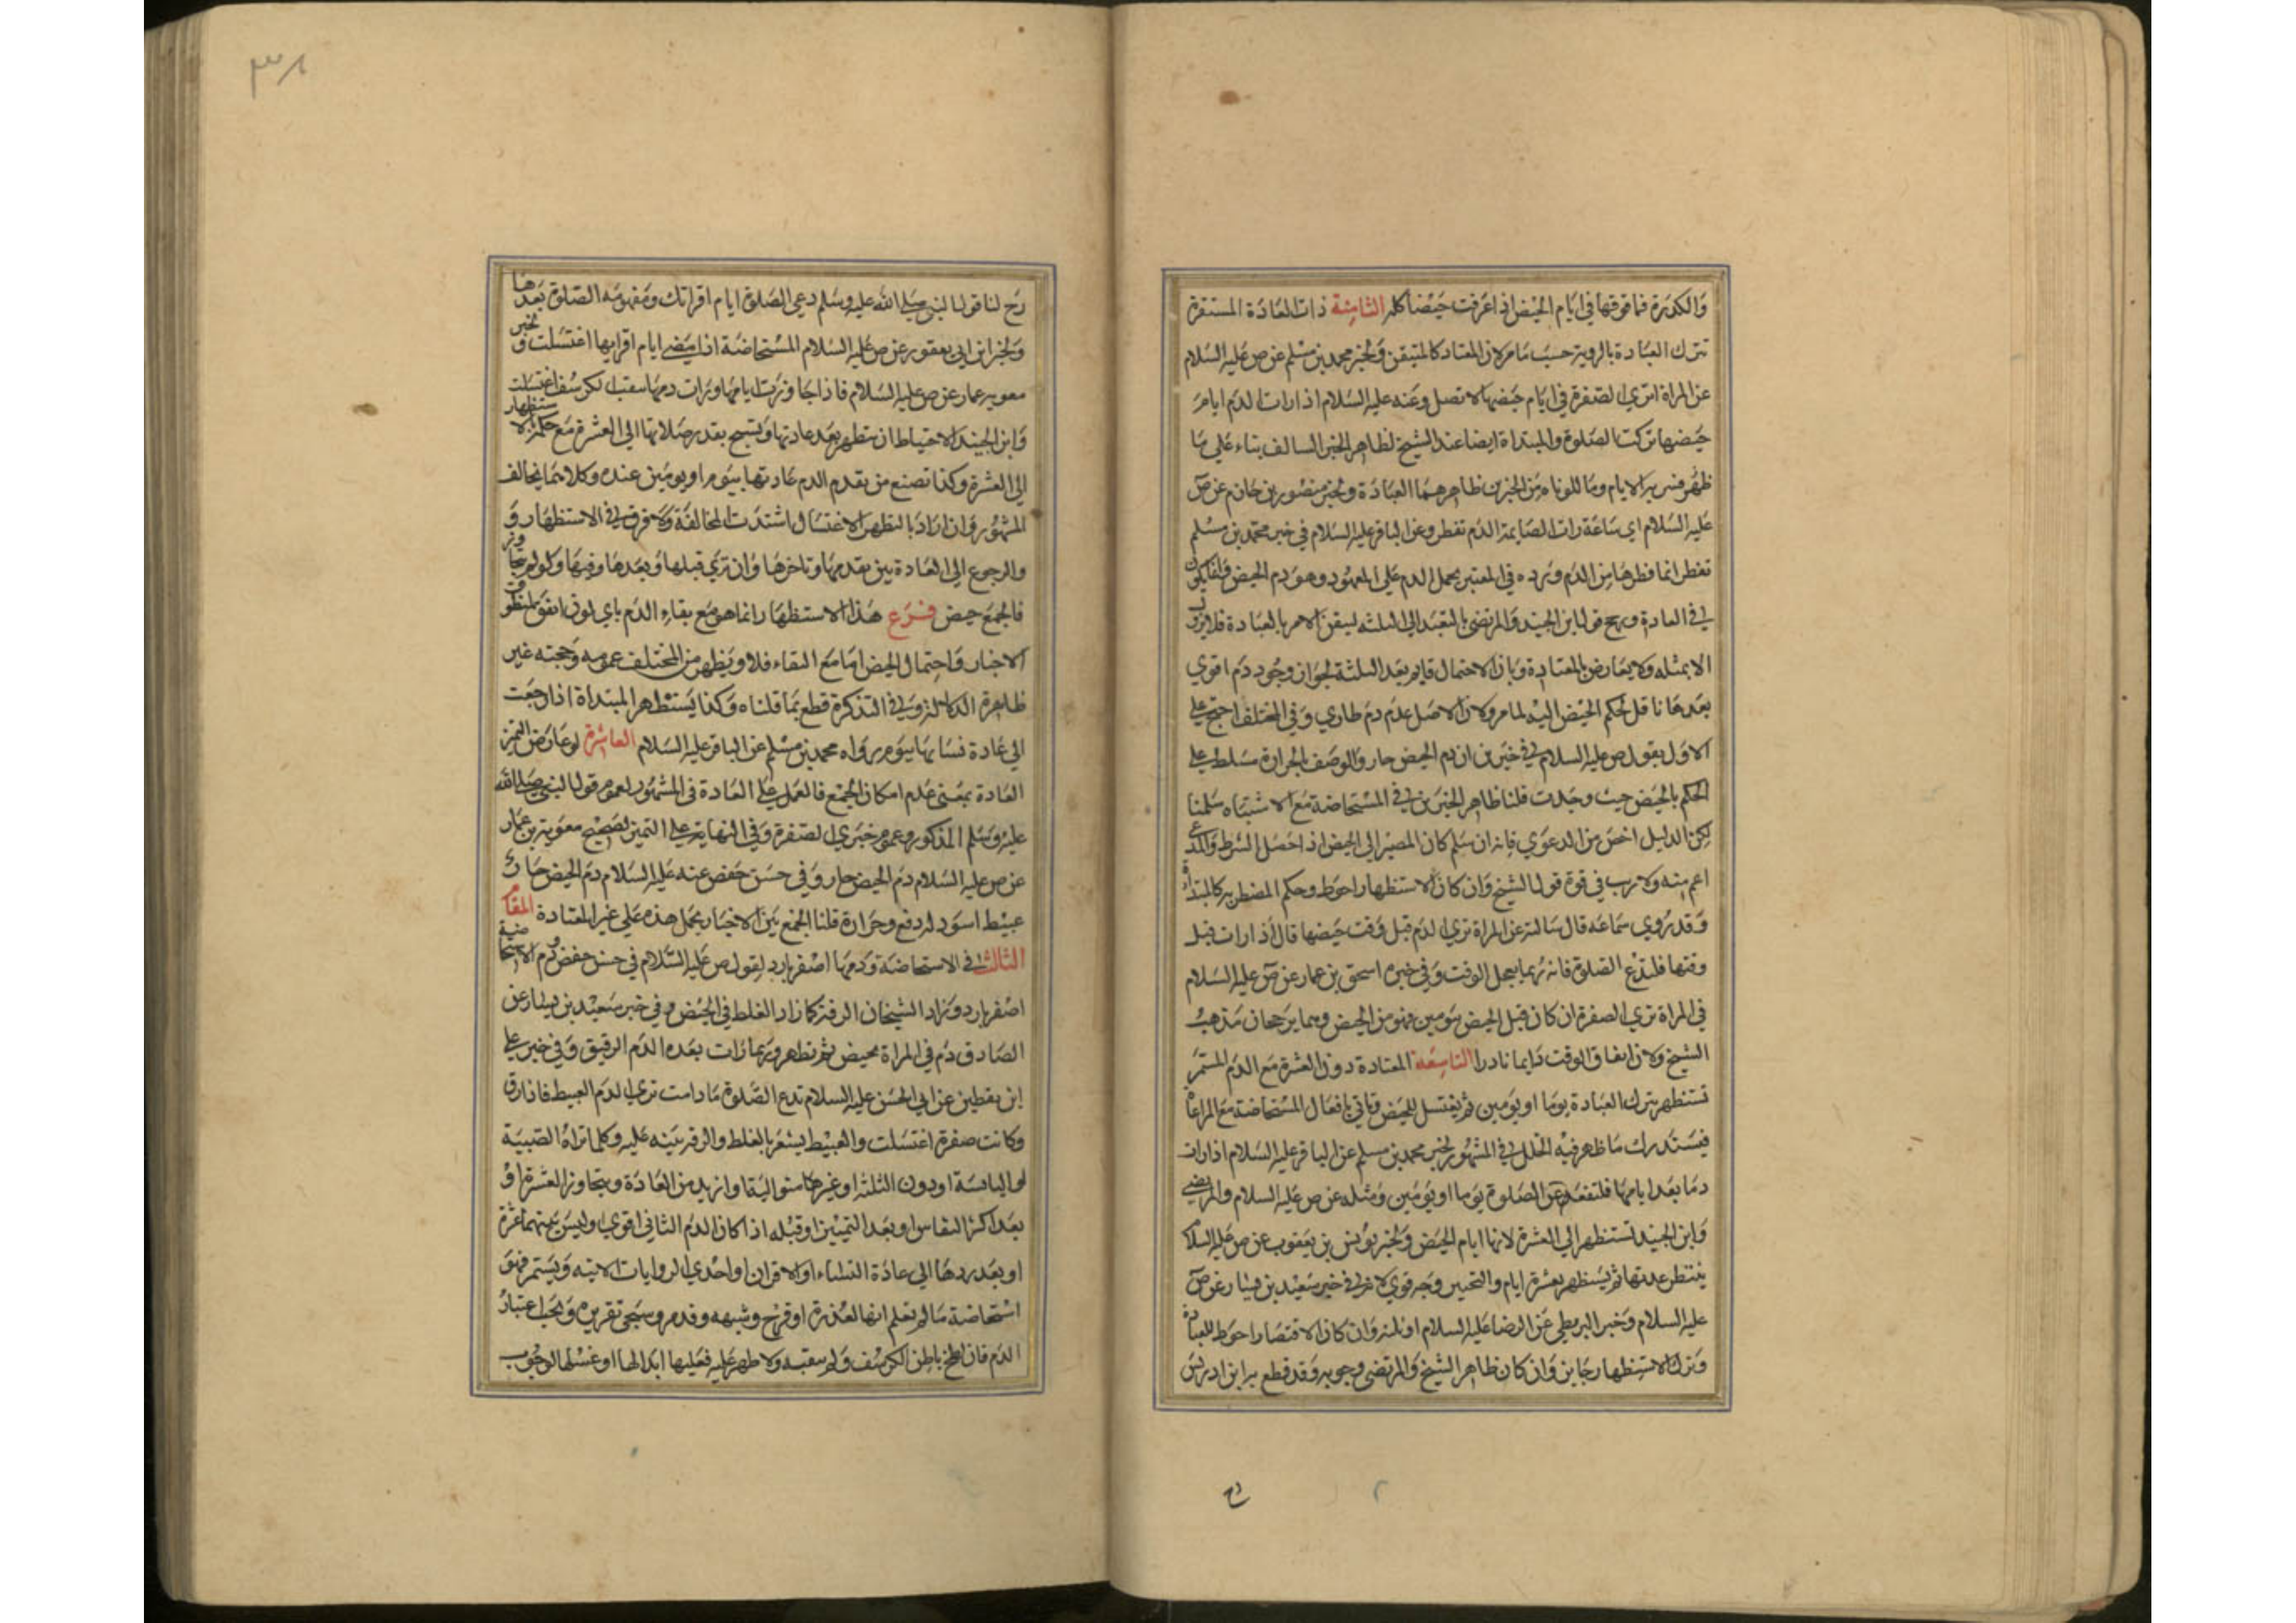 والكدرة فما فوقها في ايام الحيض اذا عرفت حيضا كله الثامنة ذات العادة المستقرة
تترك العبادة بالروية حسب ما مر لان المعتاد كالمتيقن ولخبر محمد بن مسلم عن ص عليه السلام
عن المراة تري الصفرة في ايام حيضها لا تصل وعنه عليه السلام اذا رات الدم ايام
حيضها تركت الصلوة والمبتداة ايضا عند الشيخ لظاهر الخبر السالف بناء علي ما
ظهر فسر به الايام وما تلوناه من الخبرين ظاهرهما العبادة ولخبر منصور بن حازم عن ص
عليه السلام اي ساعة رات الصايمة الدم تفطر وعن الباقر عليه السلام في خبر محمد بن مسلم
تفطر انما فطرها من الدم ويرده في المعتبر بحمل الدم علي المعهود وهو دم الحيض
في العادة ورجح قول ابن الجنيد والمرتضي بالتعبد الي الثلثه لتيقن الامر بالعبادة فلا يزول
الا بمثله ولا يعارض بالمعتادة وبان الاحتمال قايم بعد الثلثة لجواز وجود دم اقوي
بعدها ناقل لحكم الحيض اليه لما مر ولان الاصل عدم دم طاري وفي المختلف احتج علي
الاول بقول ص عليه السلام في خبرين ان دم الحيض حار والوصف بالحرارة سلط علي
الحكم بالحيض حيث وجدت قلنا ظاهر الخبرين في المستحاضة مع الاشتباه سلمنا
لكن الدليل اخص من الدعوي فانه ان سلم كان المصير الي الحيض اذا حصل الشرط والمدعي
اعم منه ولا ريب في قوة قول الشيخ وان كان الاستظهار احوط وحكم المضطربه كالمبتداة
وقد روي سماعه قال سالته عن المراة تري الدم قبل وقت حيضها قال اذا رات قبل
وقتها فلتدع الصلوة فانه ربما يعجل الوقت وفي خبره اسحق بن عمار عن ص عليه السلام
في المراة تري الصفرة ان كان قبل الحيض بيومين فهو من الحيض وهما يرجحان مذهب
الشيخ ولان اتفاق الوقت دايما نادر التاسعة المعتادة دون العشرة مع الدم المستمر
تستظهر بترك العبادة يوما او يومين ثم يغتسل للحيض وتاتي بافعال المستحاضة مع المراعاة
فيستدرك ما ظهر فيه الخلل في المشهور لخبر محمد بن مسلم عن الباقر عليه السلام اذا رات
دما بعد ايامها فلتقعد عن الصلوة يوما او يومين ومثله عن ص عليه السلام والمرتضي
وابن الجنيد تستظهر الي العشرة لانها ايام الحيض ولخبر يونس بن يعقوب عن ص عليه السلام
ينتظر عدتها ثم يستظهر بعشرة ايام والتخيير وجه قوي لان في خبر سعيد بن يسار عن ص
عليه السلام وخبر البزنطي عن الرضا عليه السلام او ثلثه وان كان الاقتصار احوط للعبادة
وترك الاستظهار جايز وان كان ظاهر الشيخ والمرتضي وجوبه وقد قطع به ابن ادريس
رح لنا قول النبي صلي الله عليه وسلم دعي الصلوة ايام اقرائك ومفهومه الصلوة بعدها
ولخبر ابن ابي يعفور عن ص عليه السلام المستحاضة اذا مضي ايام اقرايها اغتسلت ولخبر
معويه عمار عن ص عليه السلام فاذا جاوزت ايامها ورات دمها يثقب الكرسف اغتسلت
وابن الجنيد الاحتياط ان تستظهر بعد عادتها وتسبح بقدر صلاتها الي العشرة مع حكمه بالاستظهار
الي العشرة وكذا تصنع من تقدم الدم عادتها بيوم او يومين عنده وكلامهما يخالف
المشهور وان اراد بالتطهر الاغتسال اشتدت المخالفة ولا فرق في الاستظهار و
والرجوع الي العادة بين تقدمها وتاخرها وان تري قبلها وبعدها وفيها ولو لم يتجاوز
فالجمع حيض فرع هذا الاستظهار انما هو مع بقاء الدم باي لون اتفق لمنطوق
الاخبار واحتمال الحيض اما مع النقاء فلا ويظهر من المختلف عمومه وحجته غير
ظاهرة الدلالة وفي التذكرة قطع بما قلناه وكذا يستظهر المبتداة اذا رجعت
الي عادة نسايها بيوم رواه محمد بن مسلم عن الباقر عليه السلام العاشرة لو عارض التميز
العادة بمعني عدم امكان الجمع فالعمل علي العادة في المشهور لعموم قول النبي صلي الله
عليه وسلم المذكور وعموم خبري الصفرة وفي النهاية علي التميز لصحيح معوية بن عمار
عن ص عليه السلام دم الحيض حار وفي حسن حفص عنه عليه السلام دم الحيض حار
عبيط اسود له دفع وحرارة قلنا الجمع بين الاخبار بحمل هذه علي غير المعتادة المقام
الثالث في الاستحاضة ودمها اصفر بارد لقول ص عليه السلام في حسن حفص دم الاستحاضة
اصفر بارد وزاد الشيخان الرقة كما زاد الغلط في الحيض وفي خبر سعيد بن يسار عن
الصادق دم في المراة تحيض ثم تطهر وربما رات بعده الدم الرقيق وفي خبر علي
ابن يقطين عن ابي الحسن عليه السلام تدع الصلوة ما دامت تري الدم العبيط فاذا رق
وكانت صفرة اغتسلت والعبيط يشعر بالغلط والرقة بينه عليه وكلما تراه الصبية
او اليايسة او دون الثلثه او غيرها متواليها او ازيد من العادة ويتجاوز العشرة او
بعد اكثر النفاس او بعد التمييز او قبله اذا كان الدم الثاني اقوي وليس بينهما عشرة
او بعد ردها الي عادة النساء او الاقران او احدي الروايات الاتيه ويستمر فهو
استحاضة ما لم تعلم انها لعذرة او قرح وشبهه وقد مر وسيجئ تقريره ويجب اعتبار
الدم فان لطخ باطن الكرسف ولم يثقبه ولا ظهر عليه فعليها ابدالها او غسلها لوجوب